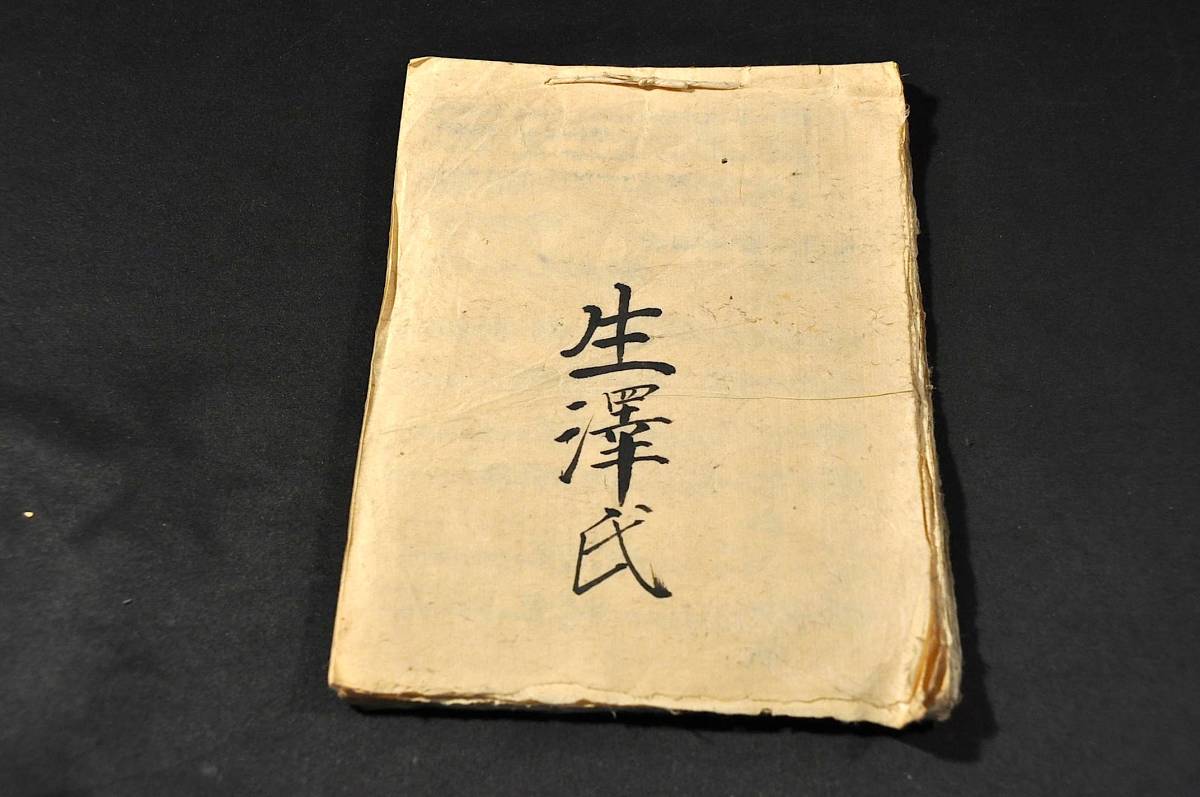 生澤氏